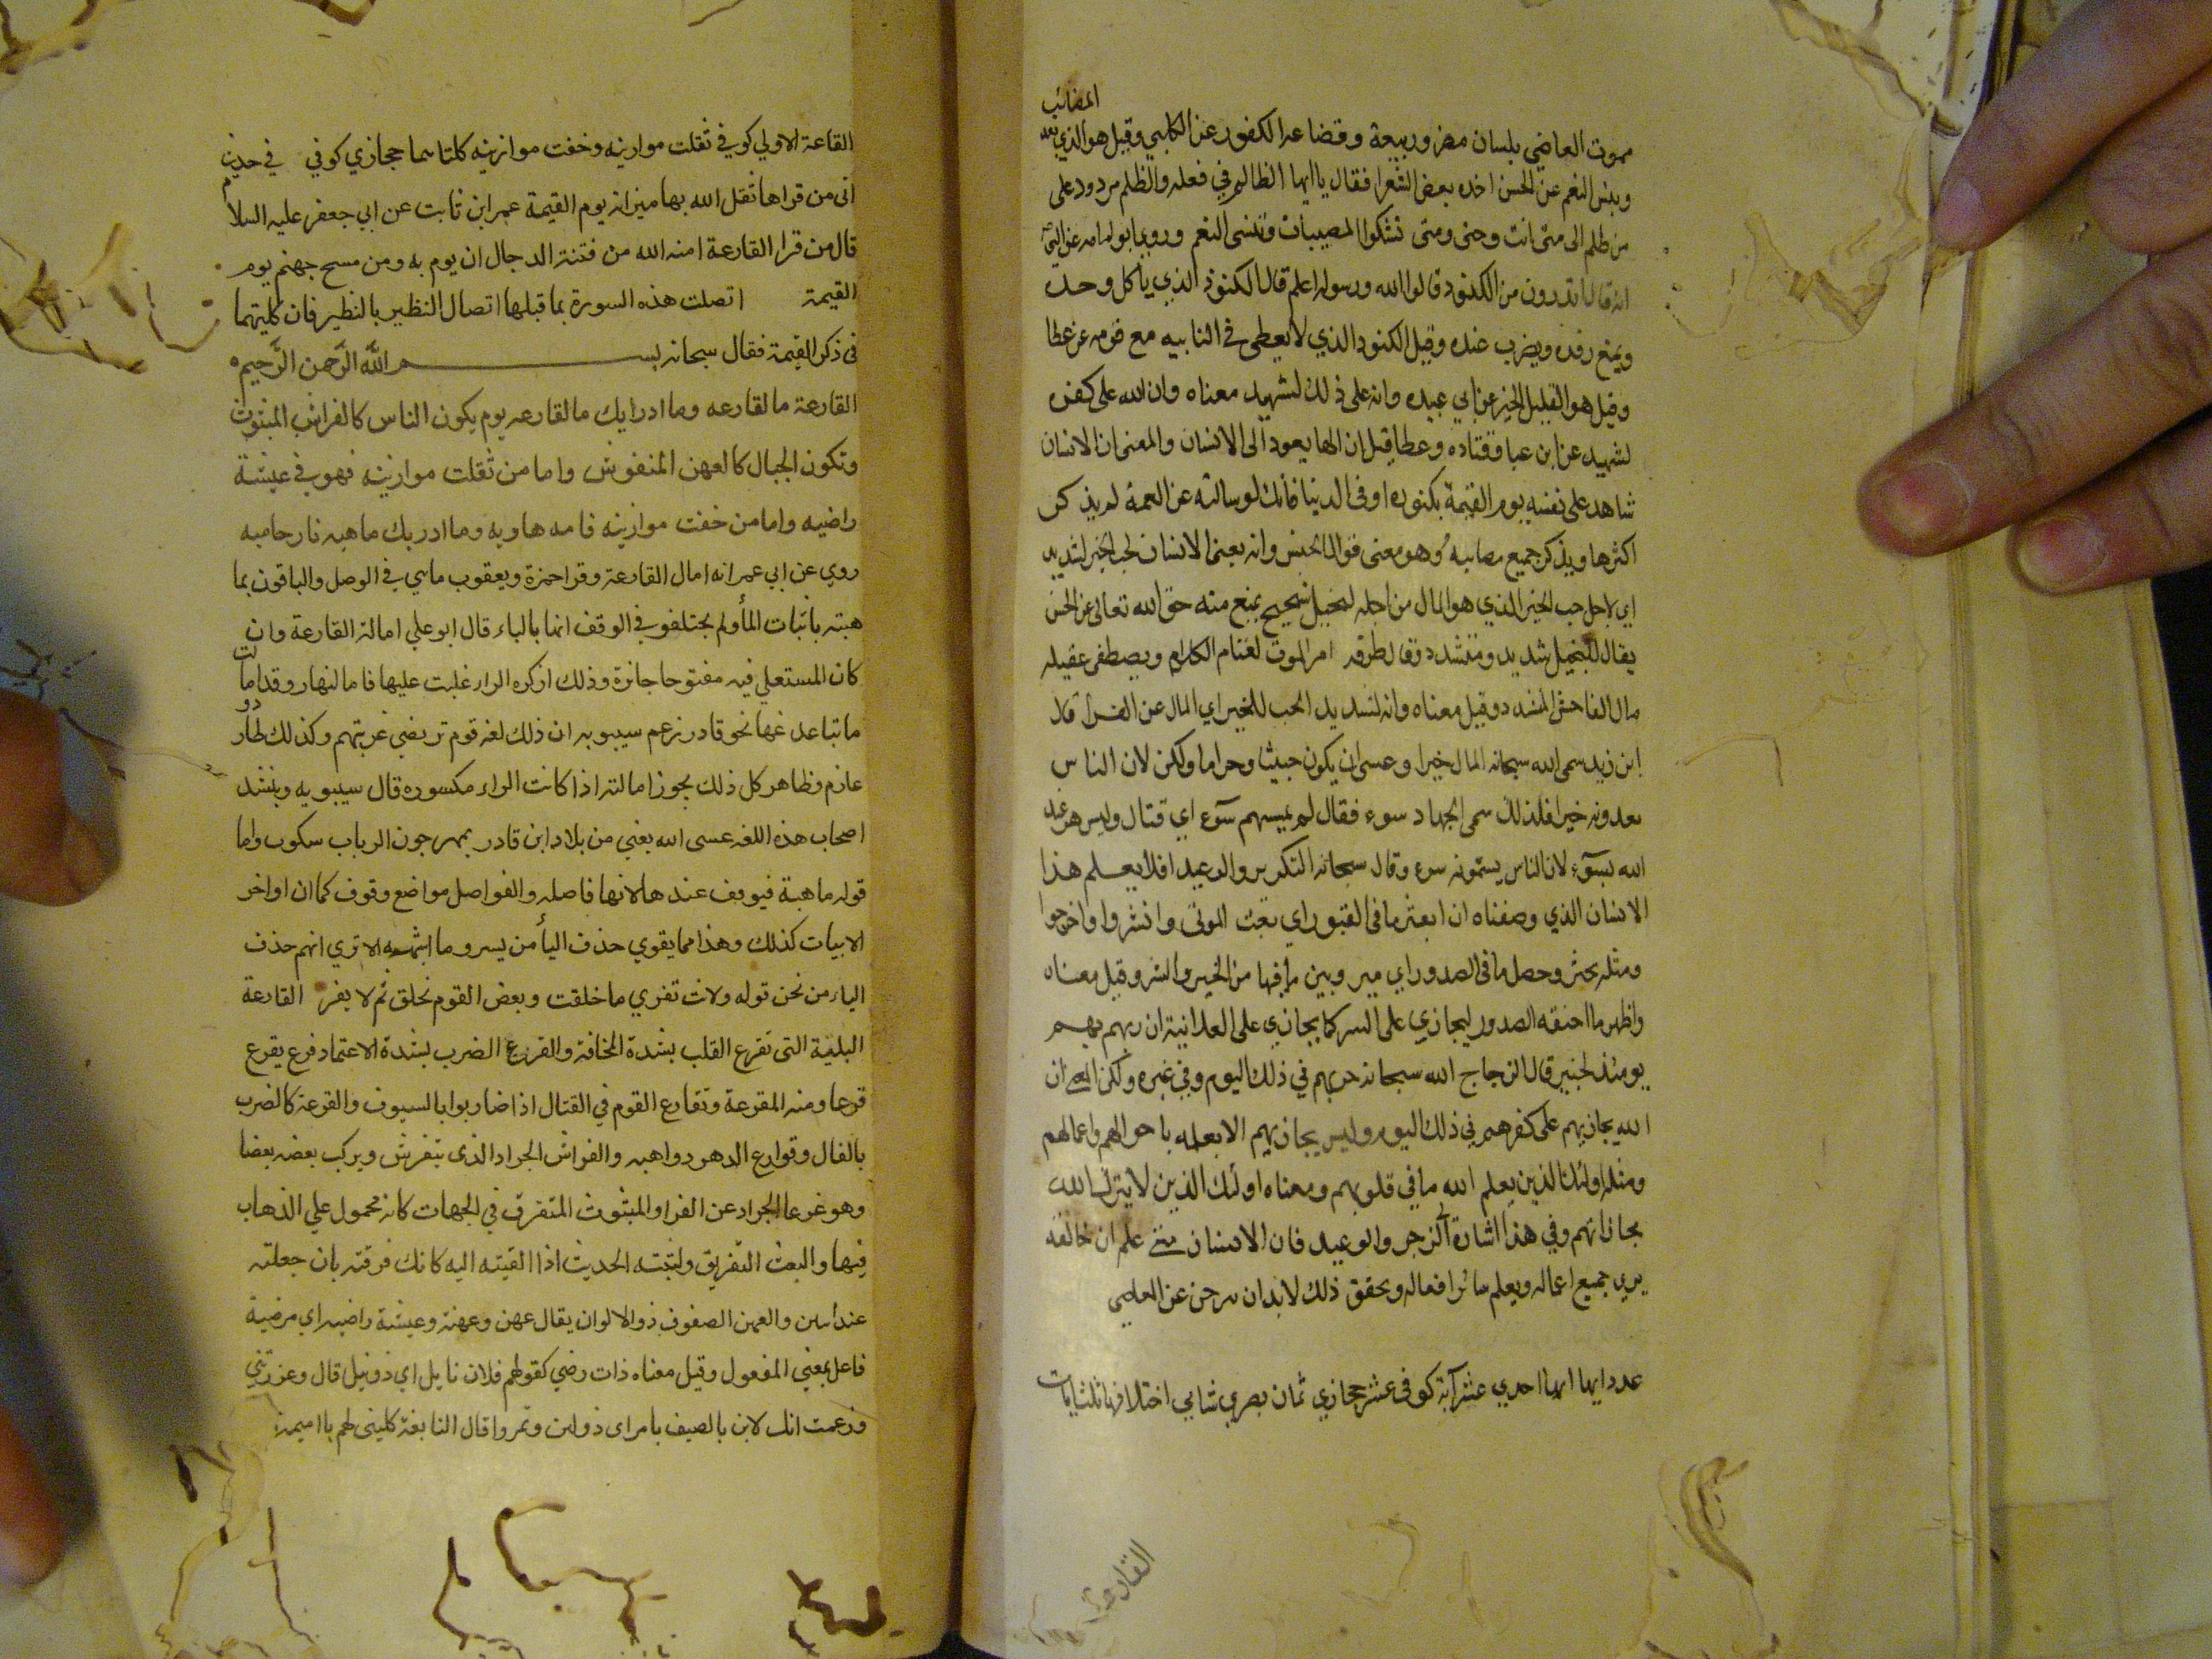 المصائب
بلسان مضر وربيعة وقضاعه الكفور عن الكلبي وقيل هو الذي يعد
وينسي النعم عن الحسن اخذه بعض الشعرا فقال يا ايها الظالم في فعله والظلم مردود على
من ظلم الى متى انت وحتى ومتى تشكوا المصيبات وتنسى النعم وروي ابو امامه عن النبي
انه قال اتدرون من الكنود قالوا الله ورسوله اعلم قال الكنود الذي ياكل وحده
ويمنع رفده ويضرب عبده وقيل الكنود الذي لا يعطي في النايبه مع قومه عن عطا
وقيل هو القليل الخير عن ابي عبيده وانه على ذلك لشهيد معناه وان الله على كفره
لشهيد عن ابن عبا وقتاده وعطا قيل ان الها يعود الى الانسان والمعنى ان الانسان
شاهد على نفسه يوم القيمة بكنوده او في الدنيا فانك لو سالته عن النعمة لم يذكر
اكثرها ويذكر جميع مصائبه وهو معنى قول الحسن وانه يعنى الانسان لحب الخير لشديد
اي لاجل حب الخير الذي هو المال من اجله لبخيل شحيح يمنع منه حق الله تعالى عن الحسن
يقال للبخيل شديد ومتشدد قال طرفه ارى الموت يعتام الكرام ويصطفى عقيله
مال الفاحش المتشدد وقيل معناه وانه لشديد الحب للخير اي المال عن الفرا قال
ابن زيد سمى الله سبحانه المال خيرا وعسى ان يكون خبيثا وحراما ولكن لان الناس
يعدونه خيرا فلذلك سمى الجهاد سوء فقال لم يمسسهم سوء اي قتال وليس هو عند
الله بسوء لان الناس يسمونه سوء وقال سبحانه التكرير والوعيد افلا يعلم هذا
الانسان الذي وصفناه ان ابعثر ما في القبور اي بعث الموتى وانشروا واخرجوا
ومثله بحثر وحصل ما في الصدور اي ميز وبين ما فيها من الخير والشر وقيل معناه
واظهر ما اخفته الصدور ليجازي على السر كما يجازي على العلانية ان ربهم بهم
يومئذ لخبير قال الزجاج الله سبحانه خبير بهم في ذلك اليوم وفي غيره ولكن المعنى ان
الله يجازيهم على كفرهم في ذلك اليوم وليس يجازيهم الا بعلمه باحوالهم واعمالهم
ومثله اولئك الذين يعلم الله ما في قلوبهم ومعناه اولئك الذين لا يترك الله
مجازاتهم وفي هذا اشارة الى الزجر والوعيد فان الانسان متى علم ان خالقه
يرى جميع اعماله ويعلم سائر افعاله وتحقق ذلك لابد ان ينزجر عن المعاصي
عدد ايها ايها احدي عشر آية كوفى عشر حجازي ثمان بصري شامي اختلافها ثلث ايات
القارعة
القاعة الاولي كوفي ثقلت موازينه وخفت موازينه كلتاهما حجازي كوفي في حديث
ابى من قراها ثقل الله بها ميزانه يوم القيمة عمر ابن ثابت عن ابي جعفر عليه السلام
قال من قرا القارعة امنه الله من فتنة الدجال ان يوم به ومن مسح جهنم يوم
القيمة اتصلت هذه السورة بما قبلها اتصال النظير بالنظير فان كليتهما
فى ذكر القيمة فقال سبحانه بسم الله الرحمن الرحيم
القارعة مالقارعه وما ادرايك مالقارعه يوم يكون الناس كالفراش المبثوث
وتكون الجبال كالعهن المنفوش واما من ثقلت موازينه فهو في عيشة
راضيه واما من خفت موازينه فامه هاويه وما ادريك ماهيه نار حاميه
روي عن ابي عمر انه امال القارعة وقرا حمزة ويعقوب ماهي في الوصل والباقون بما
هيته باثبات الها ولم يختلفو في الوقف انها بالهاء قال ابو علي امالة القارعة وان
كان المستعلي فيه مفتوحا جائزة وذلك ان كره الراء غلبت عليها فامالتها وقد امالت
ما تباعد عنها نحو قادر زعم سيبويه ان ذلك لغه قوم ترتضي عربيتهم وكذلك طارد
عازم وظاهر كل ذلك يجوز امالته اذا كانت الراء مكسوره قال سيبويه وينشد
اصحاب هذه اللغه عسى الله يغني من بلاد ابن قادر بمهرجون الرباب سكوب واما
قوله ماهية فيوقف عندها لانها فاصله والفواصل مواضع وقوف كما ان اواخر
الابيات كذلك وهذا مما يقوي حذف اليأ من يسر وما اشبهه الا تري انهم حذف
الياء من نحن قوله ولانت تفري ما خلقت وبعض القوم نخلق ثم لا يفر القارعة
البلية التى تقرع القلب بشدة المخافة والقرع الضرب بشدة الاعتماد قرع يقرع
قرعا ومنه المقرعة وتقارع القوم في القتال اذا ضاربوا بالسيوف والقرعة كالضرب
بالفال وقوارع الدهر دواهيه والفراش الجراد الذى يتفرش ويركب بعضه بعضا
وهو غوغا الجراد عن الفرا والمبثوث المتفرق في الجهات كانه محمول علي الذهاب
فيها والبعث التفريق ولبثته الحديث اذا القيته اليه كانك فرقته بان جعلته
عند اثنين والعهن الصفوف ذو الالوان يقال عهن وعهنة وعيشة راضيه اي مرضية
فاعل بمعني المفعول وقيل معناه ذات رضي كقولهم فلان نايل اي ذو نيل قال وغررتني
وزعمت انك لابن بالصيف تامر اى ذو لبن وتمر وقال النابغة كليني لهم يا اميمة